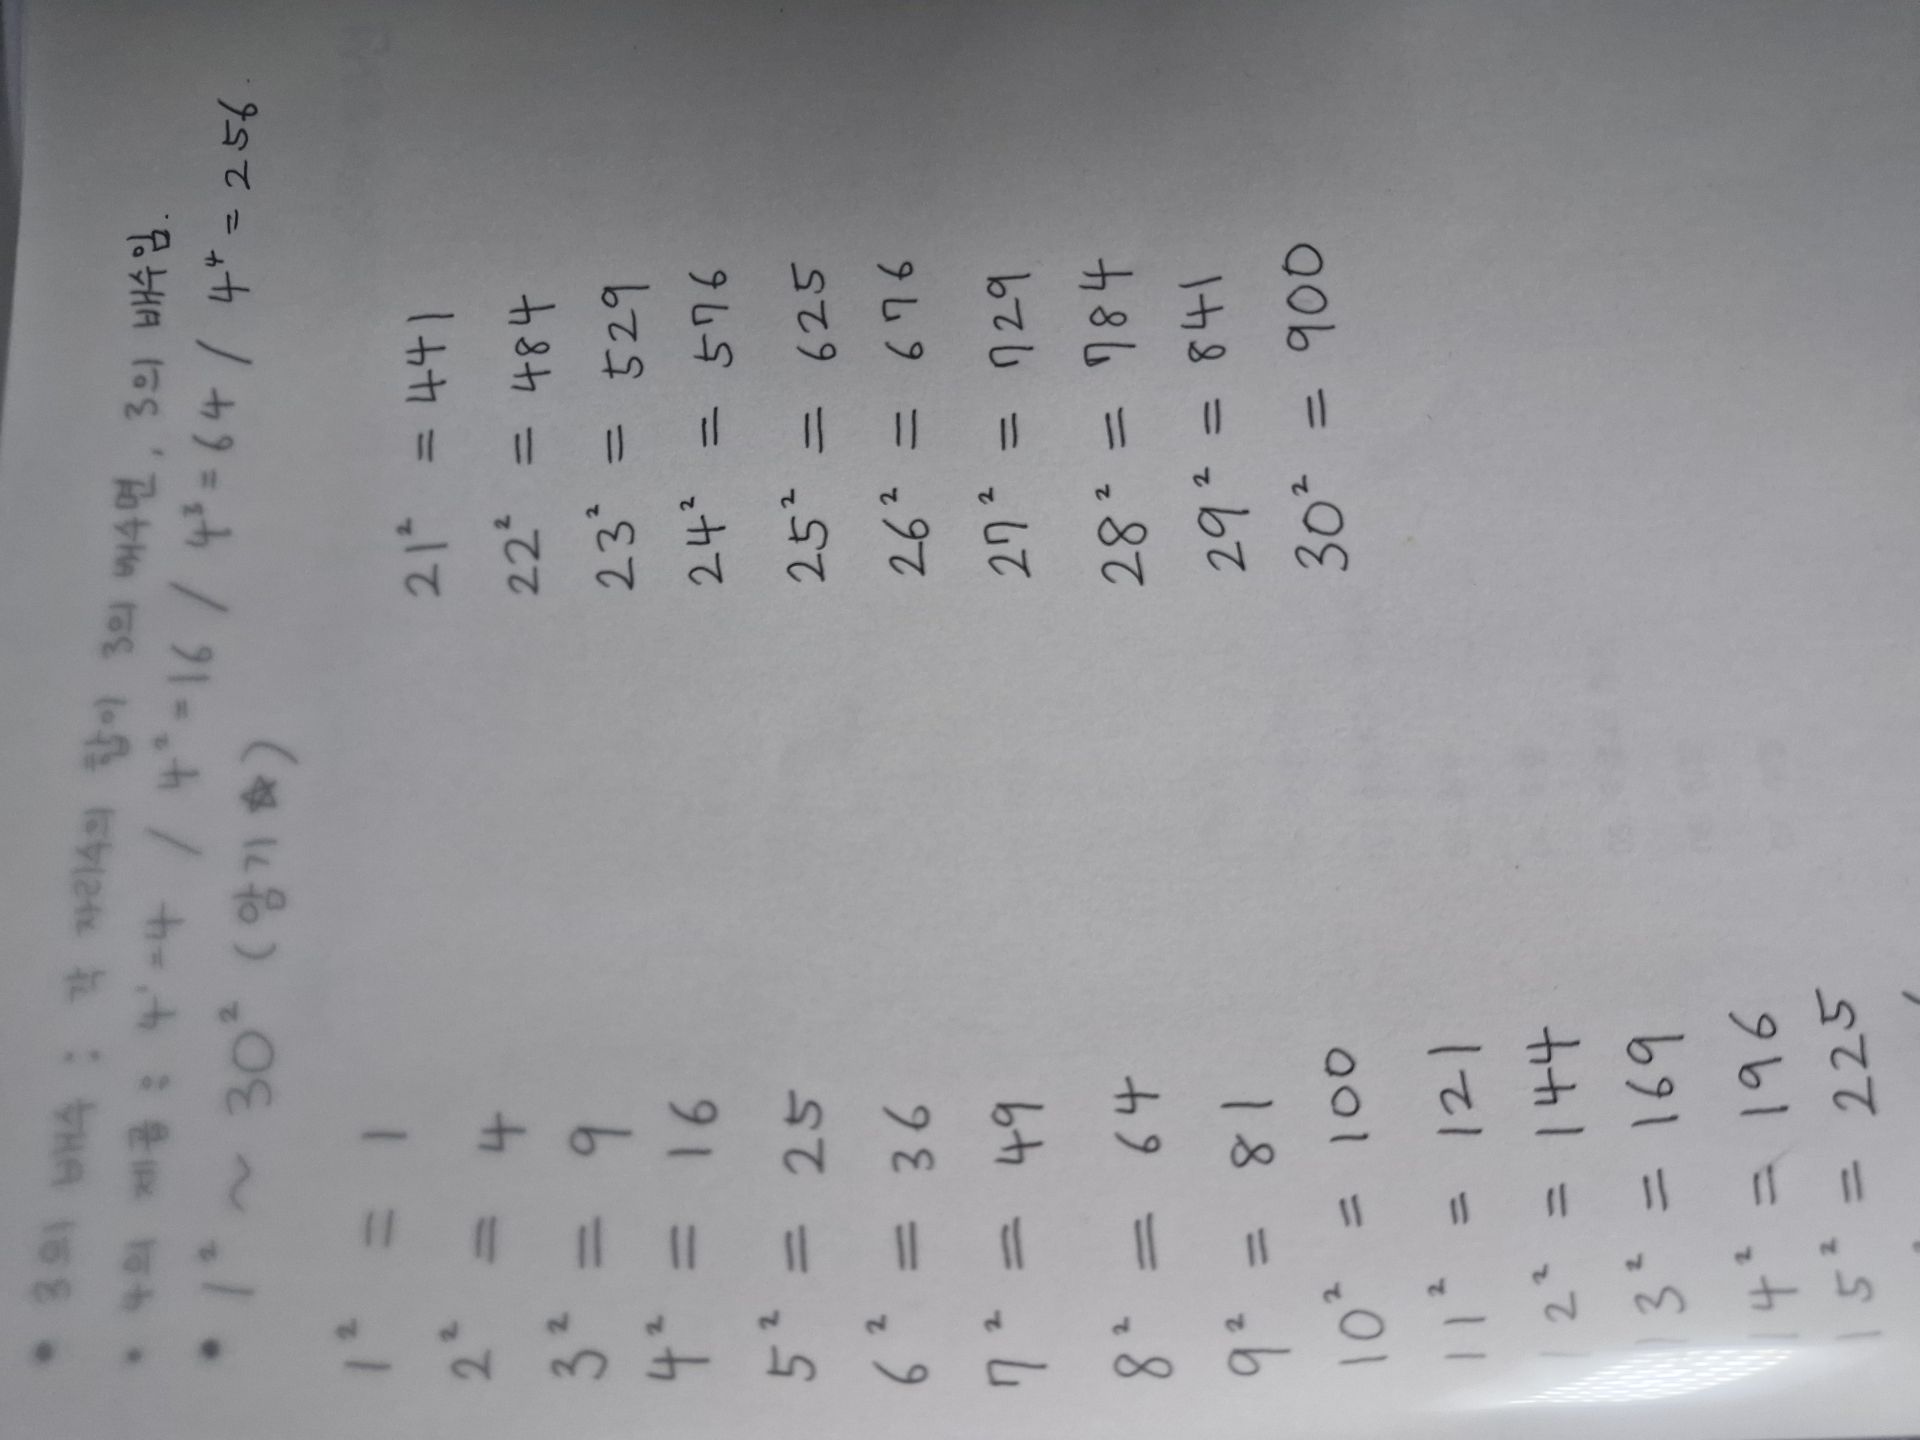 • 3의 배수 : 각 자리수의 합이 3의 배수면, 3의 배수임.
• 4의 제곱 : 4¹=4 / 4²=16 / 4³=64 / 4⁴=256.
• 1² ~ 30² (암기☆)
1² = 1
2² = 4
3² = 9
4² = 16
5² = 25
6² = 36
7² = 49
8² = 64
9² = 81
10² = 100
11² = 121
12² = 144
13² = 169
14² = 196
15² = 225
21² = 441
22² = 484
23² = 529
24² = 576
25² = 625
26² = 676
27² = 729
28² = 784
29² = 841
30² = 900